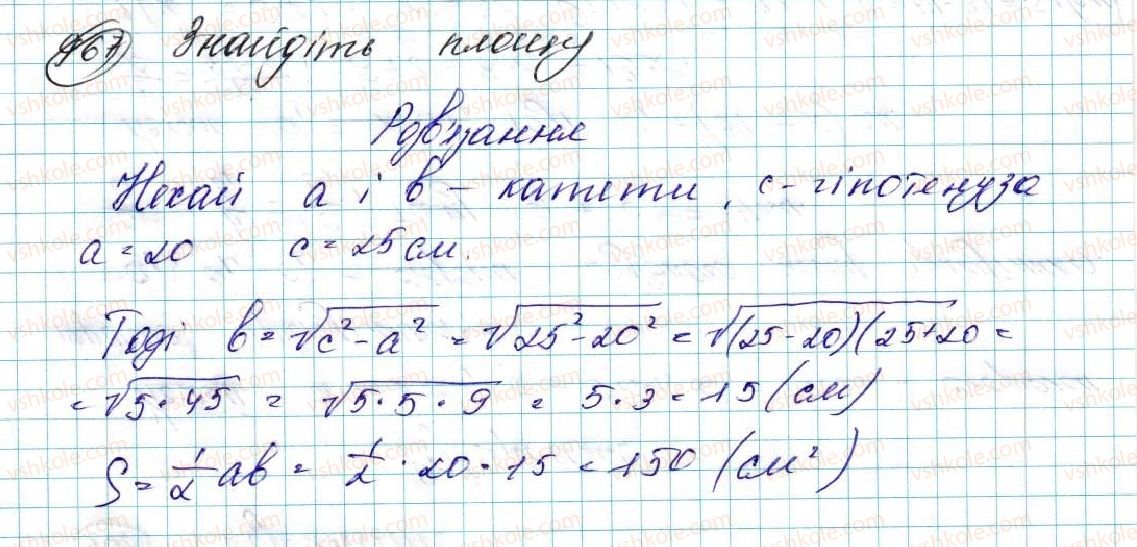 967 Знайдіть площу
Розв'язання
Нехай a і b – катети, c – гіпотенуза
a = 20 c = 25 см.
Тоді b = √c² - a² = √25² - 20² = √(25-20)(25+20 =
= √5 · 45 = √5 · 5 · 9 = 5 · 3 = 15 (см)
S = 1/2 ab = 1/2 · 20 · 15 = 150 (см²)